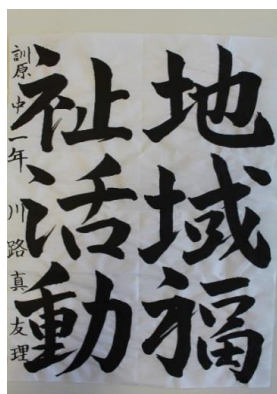 地域福
祉活動
訓原中一年川路真友理